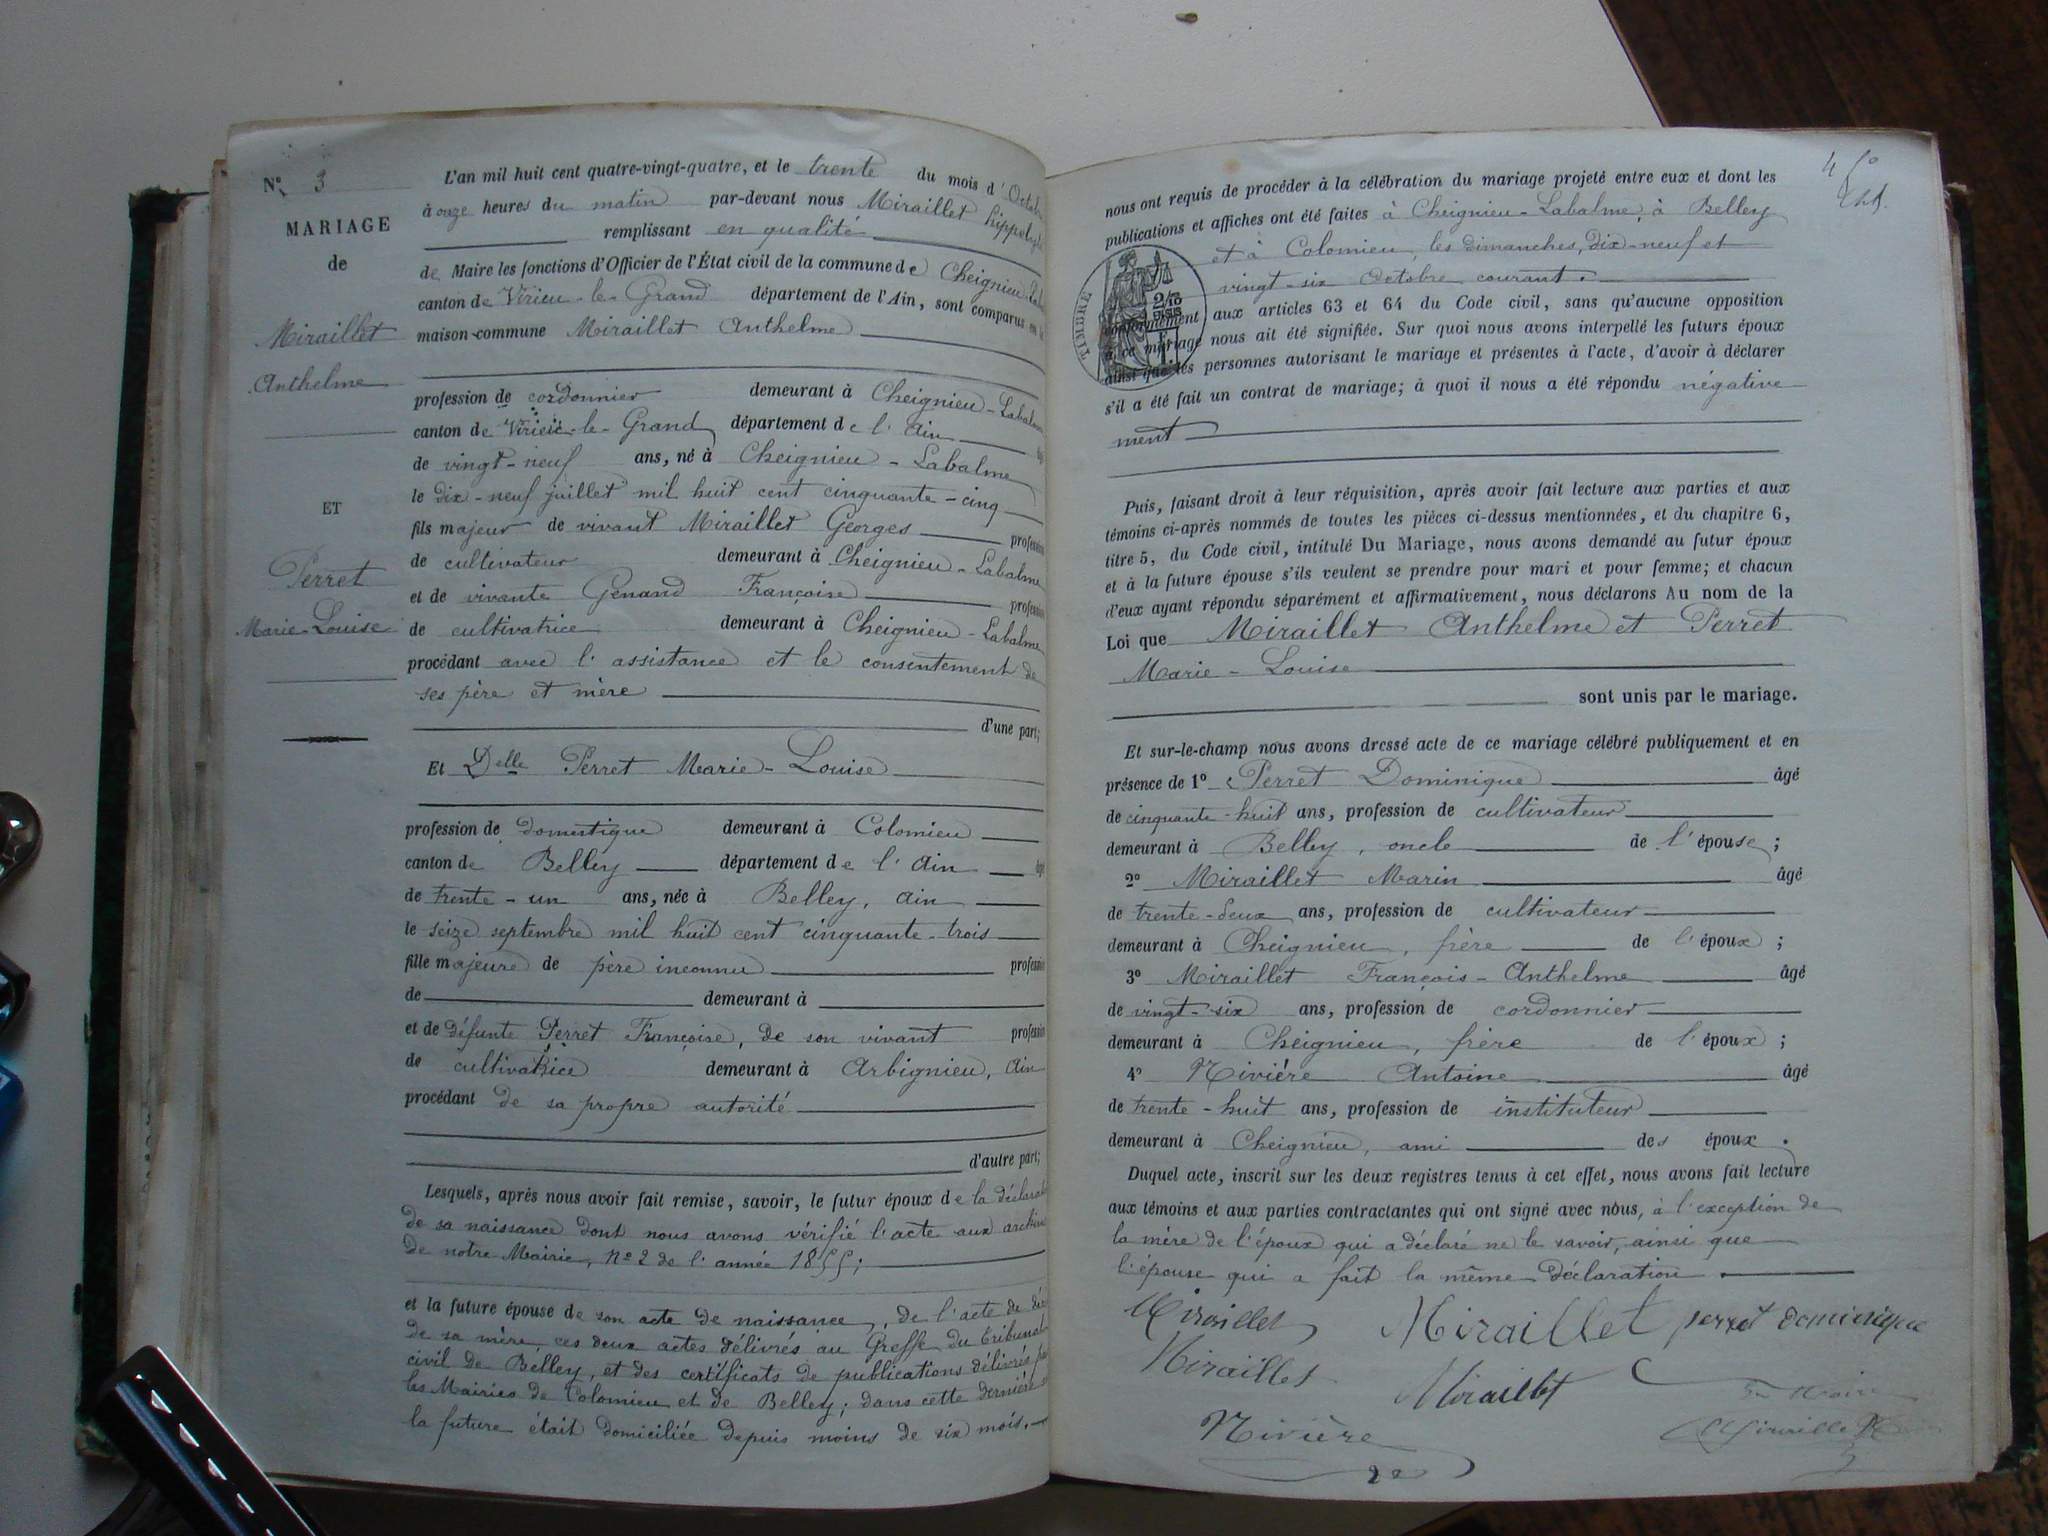 N° 3
MARIAGE
de
Miraillet
Anthelme
ET
Perret
Marie-Louise
L'an mil huit cent quatre-vingt-quatre, et le trente du mois d'Octobre
à onze heures du matin par-devant nous Miraillet hippolyte
remplissant en qualité
de Maire les fonctions d'Officier de l'État civil de la commune de Cheignieu-Labalme
canton de Virieu-le-Grand département de l'Ain, sont comparus en la
maison-commune Miraillet Anthelme
profession de cordonnier demeurant à Cheignieu-Labalme
canton de Virieu-le-Grand département de l'Ain âgé
de vingt-neuf ans, né à Cheignieu-Labalme
le dix-neuf juillet mil huit cent cinquante-cinq
fils majeur de vivant Miraillet Georges profession
de cultivateur demeurant à Cheignieu-Labalme
et de vivante Genand Françoise profession
de cultivatrice demeurant à Cheignieu-Labalme
procédant avec l'assistance et le consentement de
ses père et mère
d'une part;
Et Delle Perret Marie-Louise
profession de domestique demeurant à Colomieu
canton de Belley département de l'Ain âgé
de trente-un ans, née à Belley, Ain
le seize septembre mil huit cent cinquante-trois
fille majeure de père inconnu profession
de demeurant à
et de défunte Perret Françoise, de son vivant profession
de cultivatrice demeurant à Arbignieu, Ain
procédant de sa propre autorité
d'autre part;
Lesquels, après nous avoir fait remise, savoir, le futur époux de la déclaration
de sa naissance dont nous avons vérifié l'acte aux archives
de notre Mairie, N° 2 de l'année 1855;
et la future épouse de son acte de naissance, de l'acte de décès
de sa mère, ces deux actes délivrés au Greffe du Tribunal
civil de Belley, et des certificats de publications délivrés par
les Mairies de Colomieu et de Belley; dans cette dernière
la future était domiciliée depuis moins de six mois.
45
nous ont requis de procéder à la célébration du mariage projeté entre eux et dont les
publications et affiches ont été faites à Cheignieu-Labalme, à Belley
et à Colomieu, les dimanches, dix-neuf et
vingt-six Octobre courant.
TIMBRE
conformément aux articles 63 et 64 du Code civil, sans qu'aucune opposition
à ce mariage nous ait été signifiée. Sur quoi nous avons interpellé les futurs époux
ainsi que les personnes autorisant le mariage et présentes à l'acte, d'avoir à déclarer
s'il a été fait un contrat de mariage; à quoi il nous a été répondu négative
ment
Puis, faisant droit à leur réquisition, après avoir fait lecture aux parties et aux
témoins ci-après nommés de toutes les pièces ci-dessus mentionnées, et du chapitre 6,
titre 5, du Code civil, intitulé Du Mariage, nous avons demandé au futur époux
et à la future épouse s'ils veulent se prendre pour mari et pour femme; et chacun
d'eux ayant répondu séparément et affirmativement, nous déclarons Au nom de la
Loi que Miraillet Anthelme et Perret
Marie-Louise
sont unis par le mariage.
Et sur-le-champ nous avons dressé acte de ce mariage célébré publiquement et en
présence de 1° Perret Dominique âgé
de cinquante-huit ans, profession de cultivateur
demeurant à Belley, oncle de l'épouse;
2° Miraillet Marin âgé
de trente-deux ans, profession de cultivateur
demeurant à Cheignieu, frère de l'époux;
3° Miraillet François-Anthelme âgé
de vingt-six ans, profession de cordonnier
demeurant à Cheignieu, frère de l'époux;
4° Rivière Antoine âgé
de trente-huit ans, profession de instituteur
demeurant à Cheignieu, ami des époux.
Duquel acte, inscrit sur les deux registres tenus à cet effet, nous avons fait lecture
aux témoins et aux parties contractantes qui ont signé avec nous, à l'exception de
la mère de l'époux qui a déclaré ne le savoir, ainsi que
l'épouse qui a fait la même déclaration.
Miraillet Miraillet perret dominique
Miraillet Miraillet
Rivière Miraillet